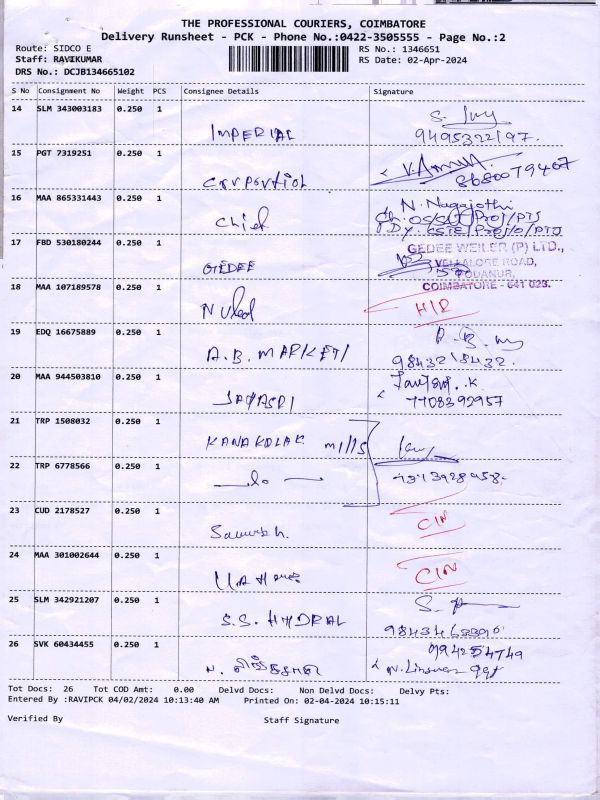 THE PROFESSIONAL COURIERS, COIMBATORE
Delivery Runsheet - PCK - Phone No.:0422-3505555 - Page No.:2
Route: SIDCO E RS No.: 1346651
Staff: RAVIKUMAR RS Date: 02-Apr-2024
DRS No.: DCJB134665102
S No Consignment No Weight PCS Consignee Details Signature
14 SLM 343003183 0.250 1
IMPERIAL 9495322197.
15 PGT 7319251 0.250 1
Corportiol 8680079407
16 MAA 865331443 0.250 1 N. Nagajothi
Chief
17 FBD 530180244 0.250 1 GEDEE WEILER (P) LTD.,
GEDEE VELLALORE ROAD,
PODANUR,
18 MAA 107189578 0.250 1 COIMBATORE - 641 023.
H/R
19 EDQ 16675889 0.250 1
A.B. MARKETI 9843218432.
20 MAA 944503810 0.250 1
JAYASRI 7708392957
21 TRP 1508032 0.250 1
KANAKDLAK mills
22 TRP 6778566 0.250 1
— do —
23 CUD 2178527 0.250 1 CIN
24 MAA 301002644 0.250 1
CIN
25 SLM 342921207 0.250 1
S.S. HYDRAL
26 SVK 60434455 0.250 1
Tot Docs: 26 Tot COD Amt: 0.00 Delvd Docs: Non Delvd Docs: Delvy Pts:
Entered By :RAVIPCK 04/02/2024 10:13:40 AM Printed On: 02-04-2024 10:15:11
Verified By Staff Signature